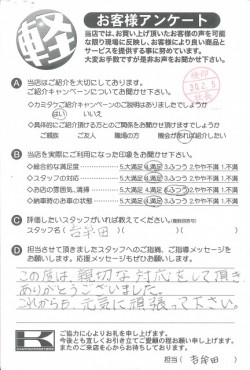 軽
お客様アンケート
当店では、お買い上げ頂いたお客様の声を可能
な限り現場に反映し、お客様により良い商品と
サービスを提供する事に努めています。
大変お手数ですが是非お声をお聞かせ下さい。
A 当店はご紹介を大切にしております。
ご紹介キャンペーンについてお聞かせ下さい。
・カミタケご紹介キャンペーンのご説明はありましたでしょうか
はい いいえ
・具体的にご紹介頂ける方とのご関係をお聞かせ頂けますでしょうか
ご親族 ご友人 職場の方 機会があれば紹介したい
B 当店を実際にご利用になった印象をお聞かせ下さい。
・総合的な満足度 5.大満足 4.満足 3.ふつう 2.やや不満 1.不満
・スタッフの対応 5.大満足 4.満足 3.ふつう 2.やや不満 1.不満
・お店の雰囲気、清掃 5.大満足 4.満足 3.ふつう 2.やや不満 1.不満
・納車時のお車の状態 5.大満足 4.満足 3.ふつう 2.やや不満 1.不満
C 評価したいスタッフがいれば教えてください。(複数回答可)
スタッフ名( 吉牟田 )
D 担当させて頂きましたスタッフへのご指摘、ご指導メッセージを
お願いします。応援メッセージもぜひお願いします。
この度は、親切な対応をして頂き
ありがとうございました。
これからも、元気に頑張って下さい。
ご協力に心よりお礼を申し上げます。
今後とも宜しくお引き立てご愛顧の程お願い申し上げます。
またのご来店を心からお待ちしております。
担当( 吉牟田 )